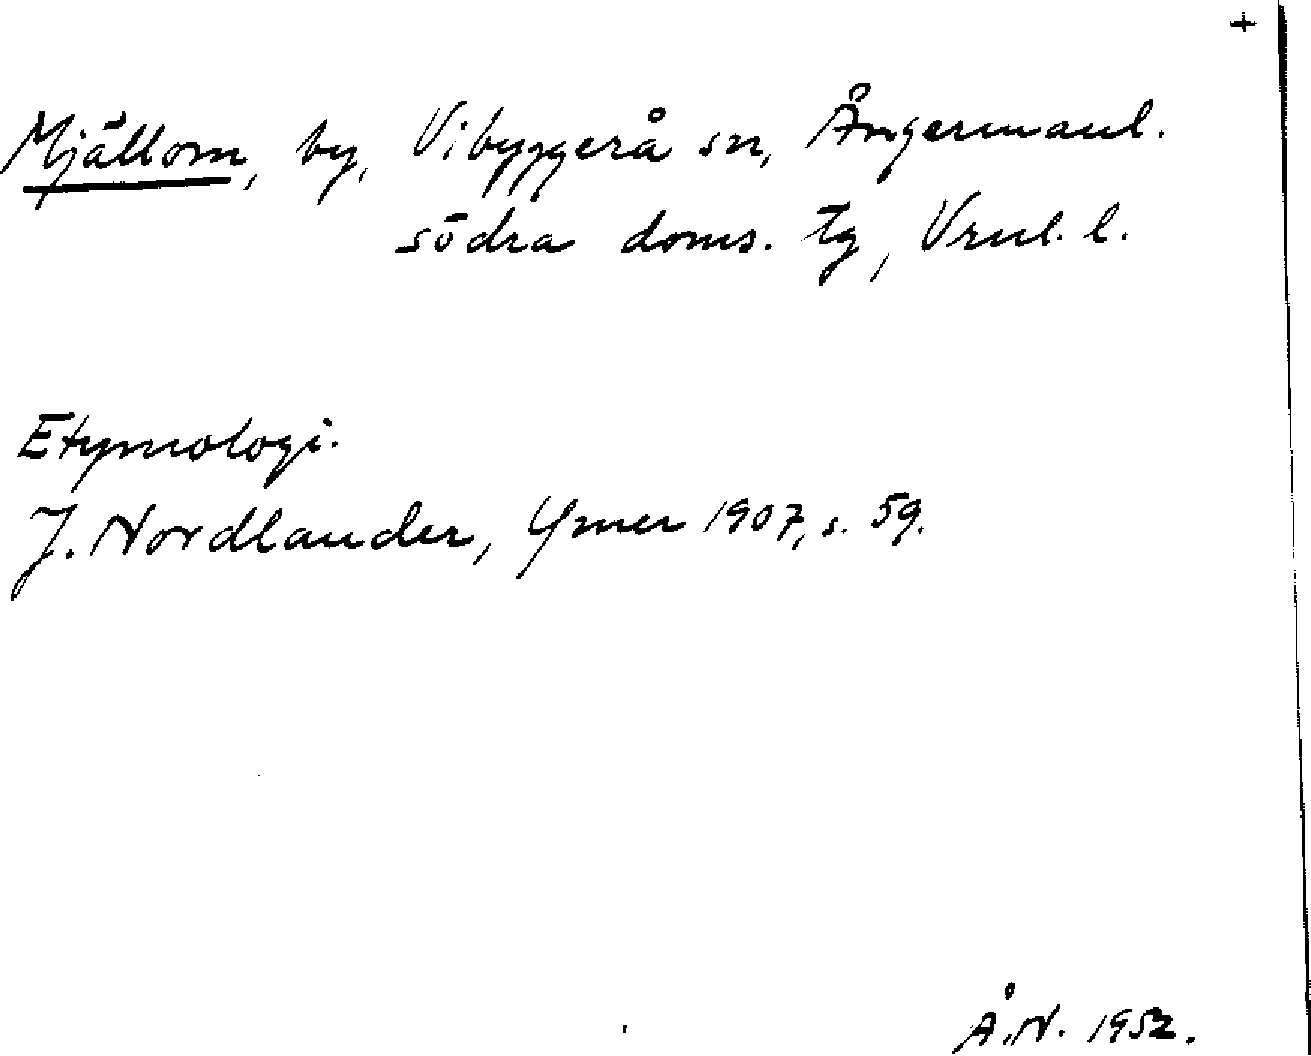 +
Mjällom, by, Vibyggerå sn, Ångermanl.
södra doms. tg, Vrnl. l.
Etymologi.
J. Nordlander, Ymer 1907, s. 59.
Å.N. 1952.